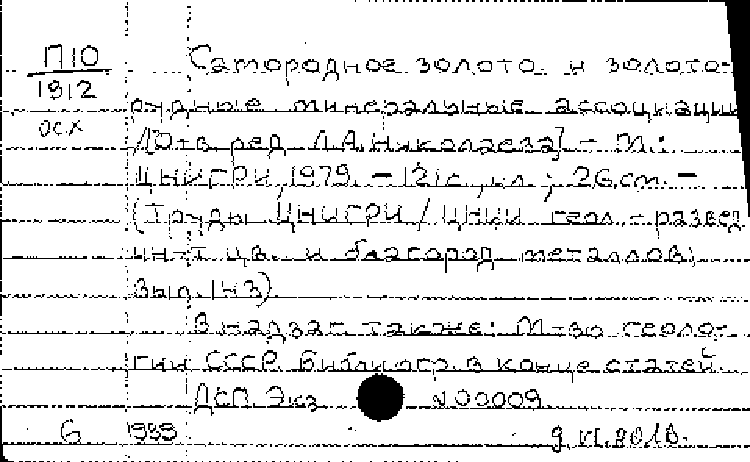 П10 Самородное золото и золото-
1912 рудные минеральные ассоциации
осх /[Отв. ред. Л.А. Николаева] - М.:
ЦНИГРИ, 1979. - 121с., ил.; 26 см. -
(Труды ЦНИГРИ / ЦНИИ геол.-развед.
ин-т цв. и благород. металлов;
вып. 143)
В надзаг. также: М-во геоло-
гии СССР. Библиогр. в конце статей
ДСП. Экз. №00009
6 1989